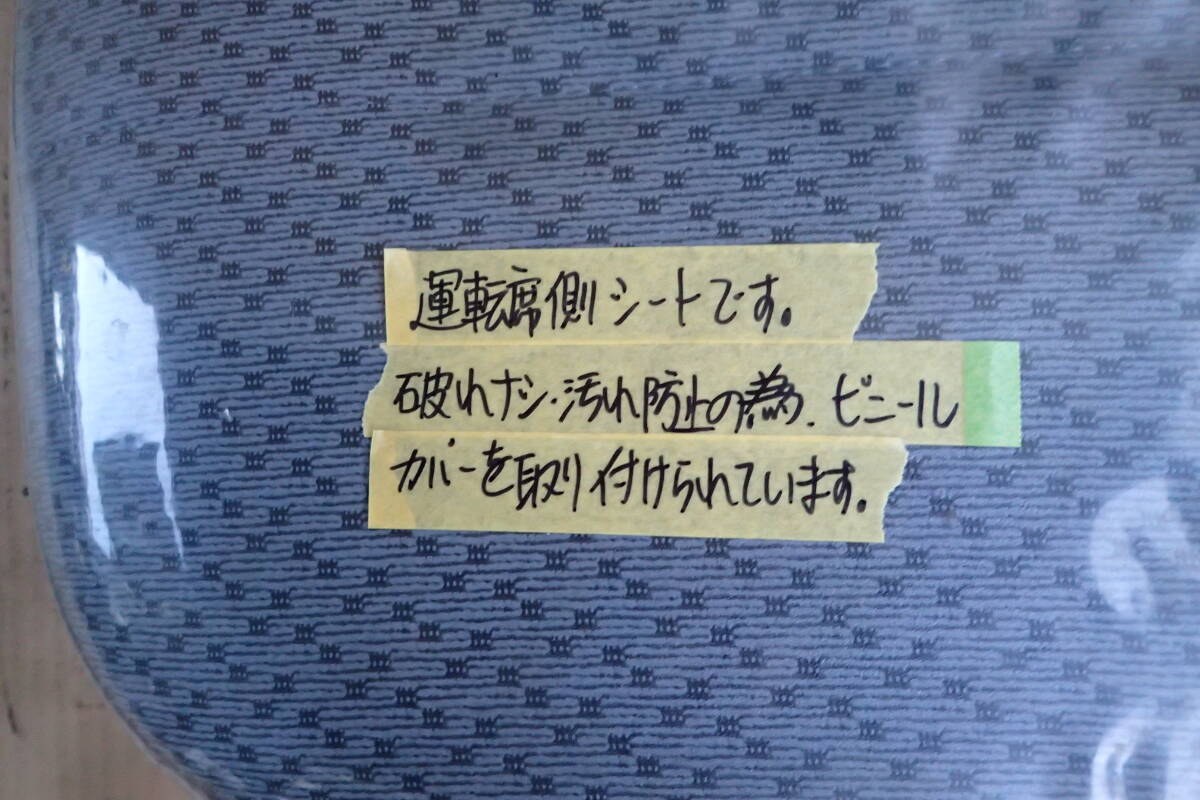 運転席側シートです。
破れナシ・汚れ防止の為、ビニール
カバーを取り付けられています。